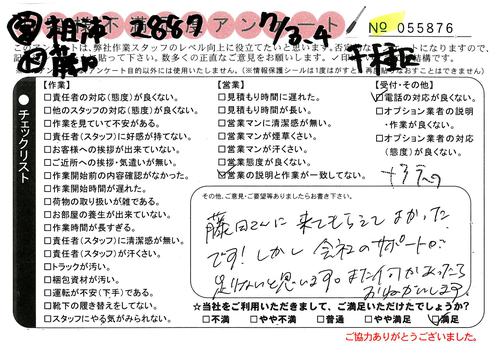 お客様不満足度アンケート
営 相沖 2887 7/3-4
№ 055876
作 藤田 千種区
このアンケートは、弊社作業スタッフのレベル向上に役立てたいと思います。
アンケート目的以外には使用いたしません。(※情報保護シールは1度はがすと再度貼りなおすことはできません)
チェックリスト
【作業】
□責任者の対応(態度)が良くない。
□他のスタッフの対応(態度)が良くない。
□作業を見ていて不安がある。
□責任者(スタッフ)に好感が持てない。
□お客様への挨拶が出来ていない。
□ご近所への挨拶・気遣いが無い。
□作業開始前の内容確認がなかった。
□作業開始時間が遅れた。
□荷物の取り扱いが雑である。
□お部屋の養生が出来ていない。
□作業時間が長すぎる。
□責任者(スタッフ)に清潔感が無い。
□責任者(スタッフ)が汗くさい。
□トラックが汚い。
□梱包資材が汚い。
□運転が不安(下手)である。
□靴下の履き替えをしてない。
□スタッフにやる気がみられない。
【営業】
□見積もり時間に遅れた。
□見積もり時間が長い。
□営業マンに清潔感が無い。
□営業マンが煙草くさい。
□営業マンが汗くさい。
□営業態度が良くない。
☑営業の説明と作業が一致してない。
【受付・その他】
☑電話の対応が良くない。
□オプション業者の説明
・作業が良くない。
□オプション業者の対応
(態度)が良くない。
その他、ご意見・ご要望等ありましたらお書き下さい。
藤田さんに来てもらえてよかった
です!しかし会社のサポートが
足りないと思います。また何かあったら
おねがいします。
☆当社をご利用いただきまして、ご満足いただけたでしょうか?
□不満 □やや不満 □普通 □やや満足 ☑満足
ご協力ありがとうございました。